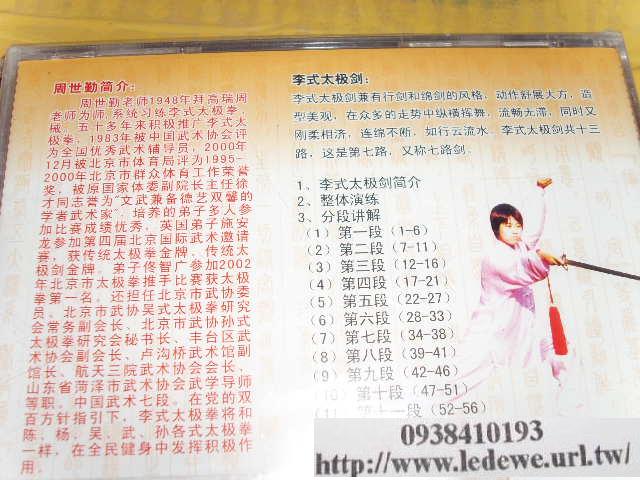 周世勤简介：
周世勤老师1948年拜高瑞周
老师为师,系统习练李式太极拳、
械。五十多年来积极推广李式太
极拳，1983年被中国武术协会评
为全国优秀武术辅导员，2000年
12月被北京市体育局评为1995-
2000年北京市群众体育工作荣誉
奖，被原国家体委副院长主任徐
才同志誉为“文武兼备德艺双馨的
学者武术家”，培养的弟子多人参
加比赛成绩优秀，英国弟子施安
龙参加第四届北京国际武术邀请
赛，获传统太极拳金牌、传统太
极剑金牌。弟子佟智广参加2002
年北京市太极拳推手比赛获太极
拳第一名，还担任北京市武协委
员、北京市武协吴式太极拳研究
会常务副会长、北京市武协孙式
太极拳研究会秘书长、丰台区武
术协会副会长、卢沟桥武术馆副
馆长、航天三院武术协会会长、
山东省菏泽市武术协会武学导师
等职。中国武术七段。在党的双
百方针指引下，李式太极拳将和
陈、杨、吴、武、孙各式太极拳
一样，在全民健身中发挥积极作
用。
李式太极剑：
李式太极剑兼有行剑和绵剑的风格，动作舒展大方，造
型美观，在众多的走势中纵横挥舞，流畅无滞，同时又
刚柔相济，连绵不断，如行云流水。李式太极剑共十三
路，这是第七路，又称七路剑。
1、李式太极剑简介
2、整体演练
3、分段讲解
（1）第一段（1-6）
（2）第二段（7-11）
（3）第三段（12-16）
（4）第四段（17-21）
（5）第五段（22-27）
（6）第六段（28-33）
（7）第七段（34-38）
（8）第八段（39-41）
（9）第九段（42-46）
（10）第十段（47-51）
（11）第十一段（52-56）
0938410193
http://www.ledewe.url.tw/